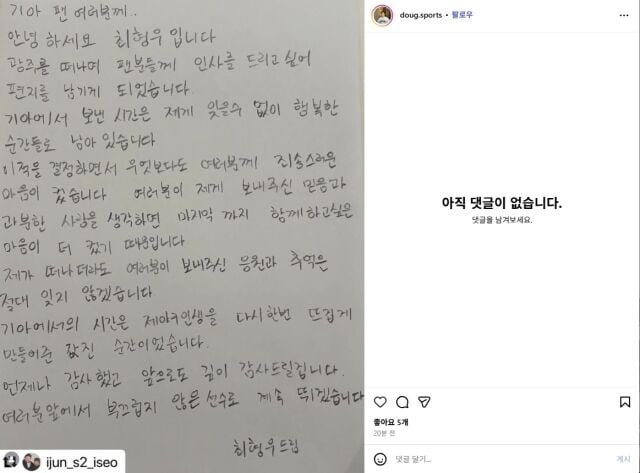 기아 팬 여러분께.
안녕하세요 최형우입니다
광주를 떠나며 팬분들께 인사를 드리고 싶어
편지를 남기게 되었습니다.
기아에서 보낸 시간은 제게 잊을수 없이 행복한
순간들로 남아 있습니다
이적을 결정하면서 무엇보다도 여러분께 죄송스러운
마음이 컸습니다 여러분이 제게 보내주신 믿음과
과분한 사랑을 생각하면 마지막 까지 함께하고싶은
마음이 더 컸기 때문입니다
제가 떠나더라도 여러분이 보내주신 응원과 추억은
절대 잊지 않겠습니다.
기아에서의 시간은 제야구인생을 다시한번 뜨겁게
만들어준 값진 순간이었습니다.
언제나 감사했고 앞으로도 깊이 감사드릴겁니다.
여러분앞에서 부끄럽지 않은선수로 계속 뛰겠습니다
최형우드림
ijun_s2_iseo
doug.sports • 팔로우
아직 댓글이 없습니다.
댓글을 남겨보세요.
좋아요 5개
20분 전
댓글 달기... 게시